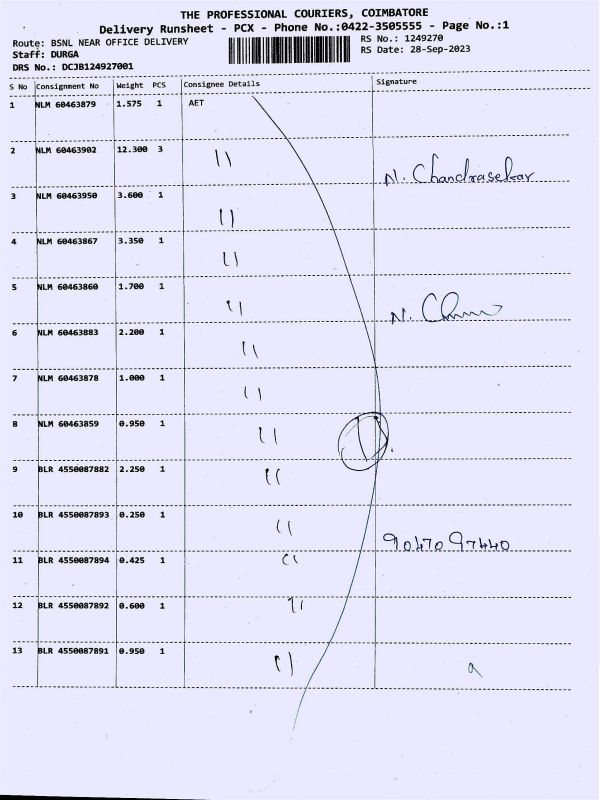 THE PROFESSIONAL COURIERS, COIMBATORE
Delivery Runsheet - PCX - Phone No.:0422-3505555 - Page No.:1
Route: BSNL NEAR OFFICE DELIVERY RS No.: 1249270
Staff: DURGA RS Date: 28-Sep-2023
DRS No.: DCJB124927001
S No Consignment No Weight PCS Consignee Details Signature
1 NLM 60463879 1.575 1 AET
2 NLM 60463902 12.300 3 11
N. Chandrasekar
3 NLM 60463950 3.600 1 11
4 NLM 60463867 3.350 1 11
5 NLM 60463860 1.700 1 11
N.
6 NLM 60463883 2.200 1 11
7 NLM 60463878 1.000 1 11
8 NLM 60463859 0.950 1 11
9 BLR 4550087882 2.250 1 11
10 BLR 4550087893 0.250 1 11
9047097440
11 BLR 4550087894 0.425 1 11
12 BLR 4550087892 0.600 1 11
13 BLR 4550087891 0.950 1 11